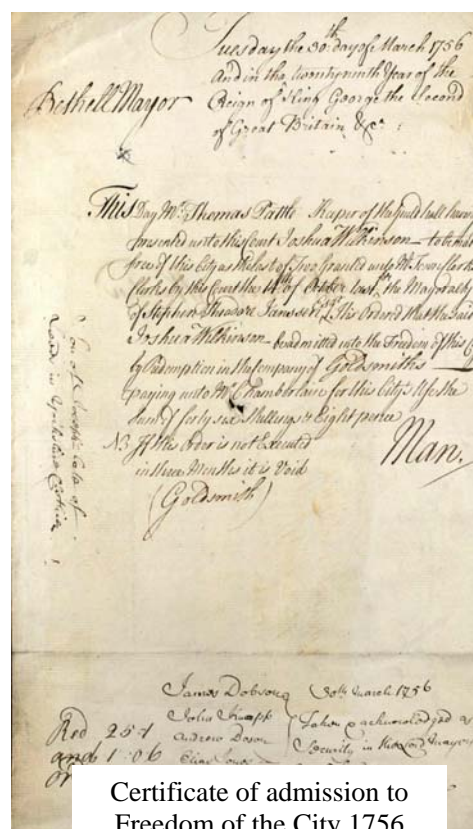 Tuesday the 30th day of March 1756
And in the twenty ninth Year of the
Reign of King George the Second
of Great Britain &c.
Bethell Mayor
This Day Mr. Thomas Keeper of the Guild hall
presented unto this Court Joshua Wilkinson to be made
free of this City as the last of Two Granted unto Mr. Town Clerks
Clerks by this Court the 14th of October last, the Mayoralty
of Stephen Theodore Janssen Esqr. It is Ordered that the said
Joshua Wilkinson be admitted into the Freedom of this
by Redemption in the Company of Goldsmiths
paying unto Mr. Chamberlain for this City's Use the
Sum of forty six Shillings & Eight pence
If this Order is not Executed
in three Months it is Void
(Goldsmith)
Man.
Son of Joseph late of
Leeds in Yorkshire
James Dobson
30th March 1756
John Knapp
Andrew
Taken & acknowledged as
Security in the Lord Mayor
Red
and
Certificate of admission to
Freedom of the City 1756